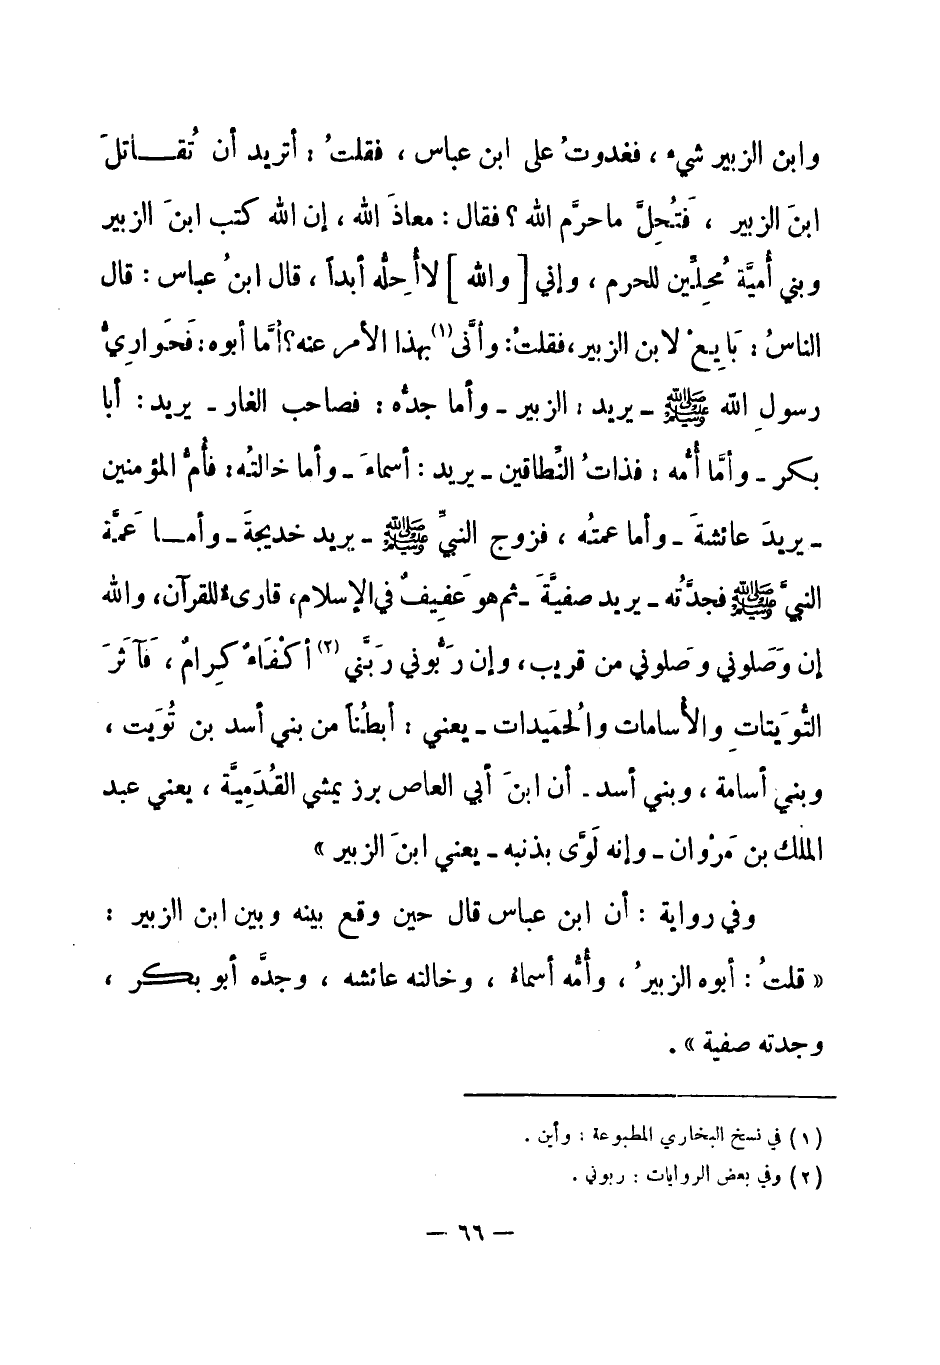 وابن الزبير شيء ، فغدوتُ على ابن عباس ، فقلتُ : أتريد أن تُقـــاتلَ
ابنَ الزبير ، فَتُحِلَّ ما حرَّم الله ؟ فقال : معاذَ الله ، إن الله كتب ابنَ الزبير
وبني أُميَّة مُحِلِّين للحرم ، وإني [ والله ] لا أُحِلُّه أبداً ، قال ابنُ عباس : قال
الناسُ : بَايِعْ لابن الزبير ، فقلتُ : وأنَّى (١) بهذا الأمر عنه ؟ أمَّا أبوه : فَحَواريُّ
رسولِ الله ﷺ ـ يريد : الزبير ـ وأما جدُّه : فصاحب الغار ـ يريد : أبا
بكر ـ وأمَّا أُمُّه : فذاتُ النِّطاقين ـ يريد : أسماءَ ـ وأما خالتُه : فأُمُّ المؤمنين
ـ يريدَ عائشةَ ـ وأما عمتُه ، فزوج النبيِّ ﷺ ـ يريد خديجةَ ـ وأمـــا عَمَّة
النبيَّ ﷺ فجدَّتُه ـ يريد صفيَّةَ ـ ثم هو عَفِيفٌ في الإسلام ، قارىءٌ للقرآن ، والله
إن وَصَلوني وصَلوني من قريب ، وإن رَبُّوني رَبَّني (٢) أكْفَاءٌ كِرامٌ ، فَآثَرَ
التُّوَيتاتِ والأُسامات والحُمَيدات ـ يعني : أبطُناً من بني أسد بن تُوَيت ،
وبني أسامة ، وبني أسد ـ أن ابنَ أبي العاص برز يمشي القُدَمِيَّة ، يعني عبد
الملك بن مَرْوان ـ وإنه لَوَّى بذنبه ـ يعني ابنَ الزبير »
وفي رواية : أن ابن عباس قال حين وقع بينه وبين ابن الزبير :
« قلتُ : أبوه الزبيرُ ، وأُمُّه أسماءُ ، وخالته عائشه ، وجدَّه أبو بكـــر ،
وجدته صفية » .
(١) في نسخ البخاري المطبوعة : وأين .
(٢) وفي بعض الروايات : ربوني .
— ٦٦ —